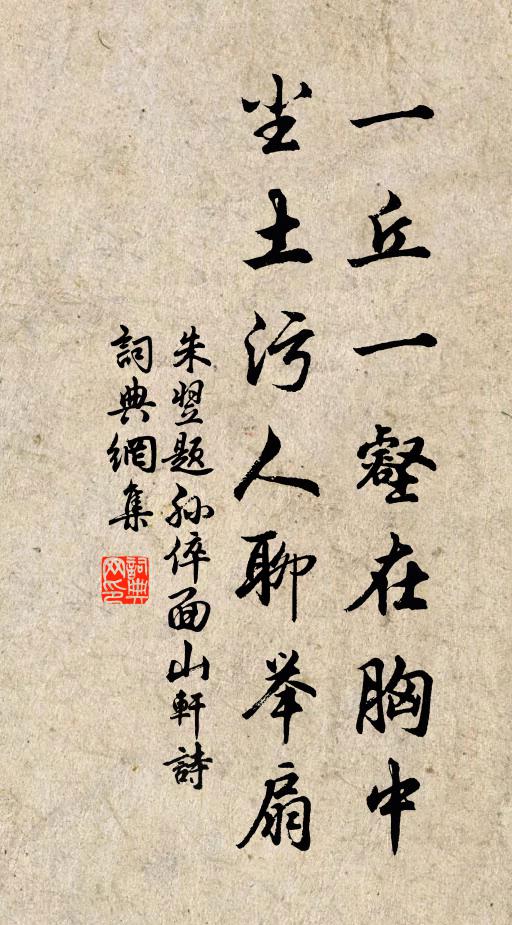 一丘一壑在胸中
尘土污人聊举扇
朱翌题孙倅面山軒詩
詞典網集
詞典网印